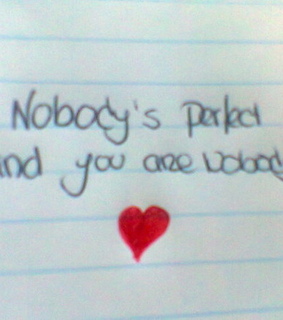 Nobody's perfect
and you are Nobody